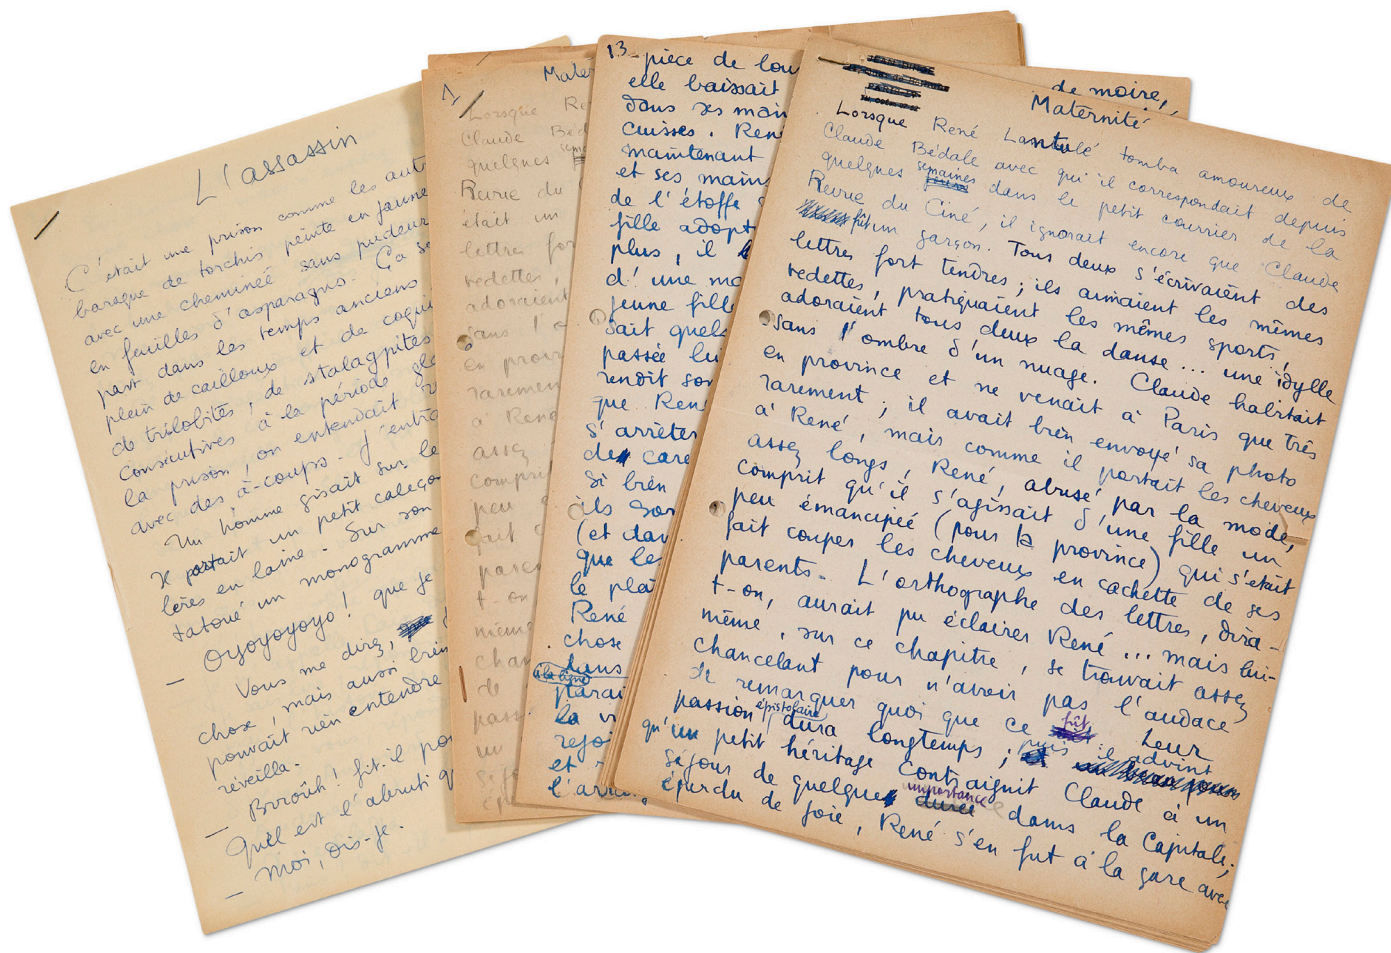 L'assassin
C'était une prison comme les autr
baraque de torchis peinte en jaune
avec une cheminée sans pudeur
en feuilles d'asparagus. Ça se
part dans les temps anciens
plein de cailloux et de coqui
de trilobites, de stalagpites
consécutives à la période gla
la prison, on entendait
avec des à-coups. J'entra
Un homme gisait sur le
Il portait un petit caleço
lères en laine. Sur son
tatoué un monogramme
— Oyoyoyoyo! que je
Vous me direz,
chose, mais aussi bien
pouvait rien entendre
réveilla.
— Brroûh! fit-il
Quel est l'abruti q
— Moi, dis-je.
1
Mater
Lorsque Re
Claude Béd
quelques sema
Revue du
était un
lettre for
vedettes,
adoraient
sans l'o
en provin
rarement
à René
assez
compri
peu
fait
paren
t-on
même
chan
de
pass
un
séj
13
pièce de lou
elle baissait
dans ses main
cuisses. René
maintenant
et ses mains
de l'étoffe
fille adopt
plus, il
d'une mo
jeune fille
sait quels
passée lui
rendit son
que René
s'arrêter
de care
Si bien
ils
(et dav
que les
le plai
René
chose
dans
parai
la v
rejoi
et
l'arri
de moire,
Maternité
Lorsque René Lantulé tomba amoureux de
Claude Bédale avec qui il correspondait depuis
quelques semaines dans le petit courrier de la
Revue du Ciné, il ignorait encore que Claude
fût un garçon. Tous deux s'écrivaient des
lettres fort tendres; ils aimaient les mêmes
vedettes, pratiquaient les mêmes sports,
adoraient tous deux la danse... une idylle
sans l'ombre d'un nuage. Claude habitait
en province et ne venait à Paris que très
rarement; il avait bien envoyé sa photo
à René, mais comme il portait les cheveux
assez longs, René, abusé par la mode,
comprit qu'il s'agissait d'une fille un
peu émancipée (pour la province) qui s'était
fait couper les cheveux en cachette de ses
parents. L'orthographe des lettres, dira-
t-on, aurait pu éclairer René... mais lui-
même, sur ce chapitre, se trouvait assez
chancelant pour n'avoir pas l'audace
de remarquer quoi que ce fût. Leur
passion épistolaire dura longtemps; puis il advint
qu'un petit héritage contraignit Claude à un
séjour de quelque importance dans la Capitale;
éperdu de joie, René s'en fut à la gare avec